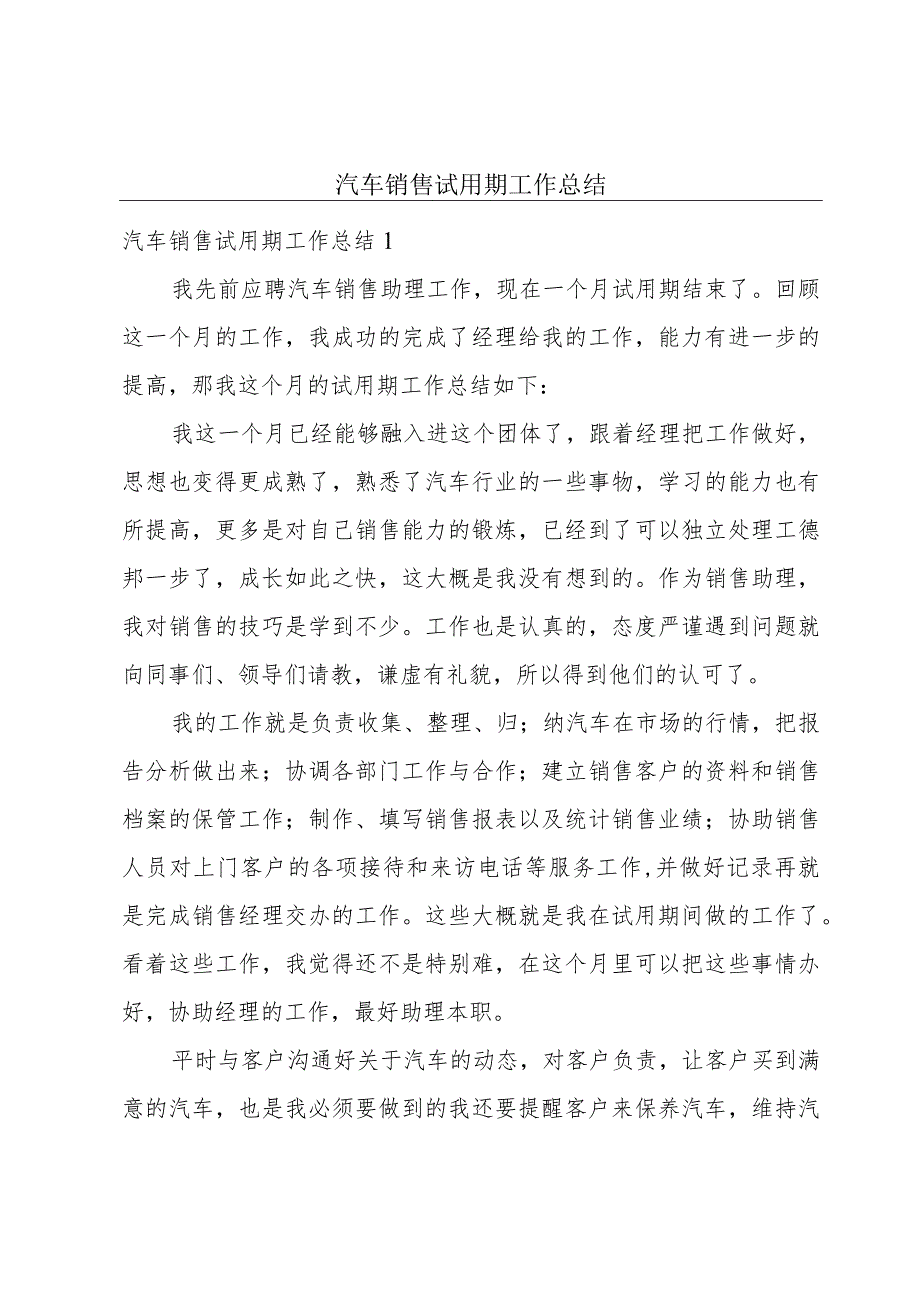 汽车销售试用期工作总结
汽车销售试用期工作总结 1
我先前应聘汽车销售助理工作，现在一个月试用期结束了。回顾
这一个月的工作，我成功的完成了经理给我的工作，能力有进一步的
提高，那我这个月的试用期工作总结如下：
我这一个月已经能够融入进这个团体了，跟着经理把工作做好，
思想也变得更成熟了，熟悉了汽车行业的一些事物，学习的能力也有
所提高，更多是对自己销售能力的锻炼，已经到了可以独立处理工德
邦一步了，成长如此之快，这大概是我没有想到的。作为销售助理，
我对销售的技巧是学到不少。工作也是认真的，态度严谨遇到问题就
向同事们、领导们请教，谦虚有礼貌，所以得到他们的认可了。
我的工作就是负责收集、整理、归；纳汽车在市场的行情，把报
告分析做出来；协调各部门工作与合作；建立销售客户的资料和销售
档案的保管工作；制作、填写销售报表以及统计销售业绩；协助销售
人员对上门客户的各项接待和来访电话等服务工作,并做好记录再就
是完成销售经理交办的工作。这些大概就是我在试用期间做的工作了。
看着这些工作，我觉得还不是特别难，在这个月里可以把这些事情办
好，协助经理的工作，最好助理本职。
平时与客户沟通好关于汽车的动态，对客户负责，让客户买到满
意的汽车，也是我必须要做到的我还要提醒客户来保养汽车，维持汽